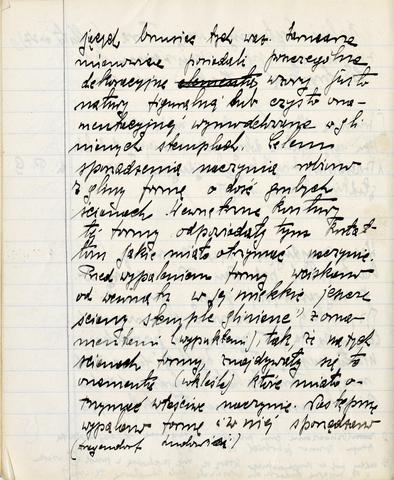 jących
mianowicie posiadali poszczególne
dekoracyjne elementy, wzory już to
natury figuralnej lub czysto orna-
mentacyjnej wymodelowane w gli-
nianych stemplach. Celem
sporządzenia naczynia robiono
z gliny formę o dość grubych
ścianach. Wewnętrzne kontury
tej formy odpowiadały tym kształ-
tom jakie miało otrzymać naczynie.
Przed wypaleniem formy wciskano
od wewnątrz w jej miękkie jeszcze
ściany stemple gliniane z orna-
mentami (wypukłemi), tak, że na tych
ścianach formy, znajdywały się te
ornamenta (wklęsłe) które miało o-
trzymać właściwe naczynie. Następnie
wypalano formę i w niej sporządzano
(Dragendorf